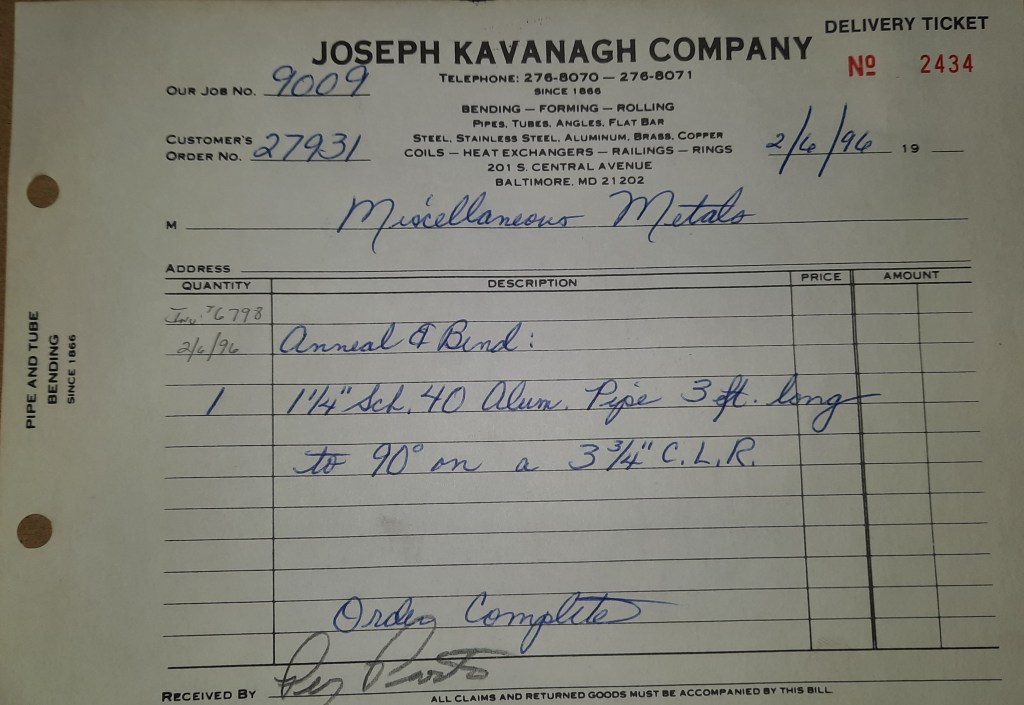 DELIVERY TICKET
JOSEPH KAVANAGH COMPANY
Nº 2434
TELEPHONE: 276-8070 — 276-8071
SINCE 1866
OUR JOB NO. 9009
BENDING — FORMING — ROLLING
PIPES, TUBES, ANGLES, FLAT BAR
CUSTOMER'S ORDER NO. 27931
STEEL, STAINLESS STEEL, ALUMINUM, BRASS, COPPER
COILS — HEAT EXCHANGERS — RAILINGS — RINGS
2/6/96 19
201 S. CENTRAL AVENUE
BALTIMORE, MD 21202
M Miscellaneous Metals
ADDRESS
QUANTITY DESCRIPTION PRICE AMOUNT
Inv. #6798
2/6/96 Anneal & Bend:
1 1 1/4" Sch. 40 Alum. Pipe 3 ft. long
to 90° on a 3 3/4" C.L.R.
Order Complete
RECEIVED BY
ALL CLAIMS AND RETURNED GOODS MUST BE ACCOMPANIED BY THIS BILL.
PIPE AND TUBE
BENDING
SINCE 1866